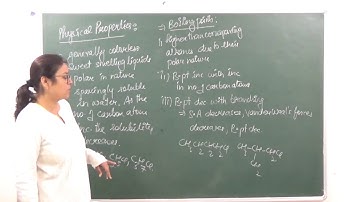 Physical Properties:-
generally colourless
sweet smelling liquids
polar in nature
sparingly soluble
in water. As the
no of carbon atom
inc. the solubility
decreases.
Boiling point:
i) Higher than corresponding
alkanes due to their
polar nature
ii) B.pt inc with inc
in no of carbon atom
iii) B.pt dec with branching
S.A decreases, Vanderwaal's forces
decreases, B.pt dec